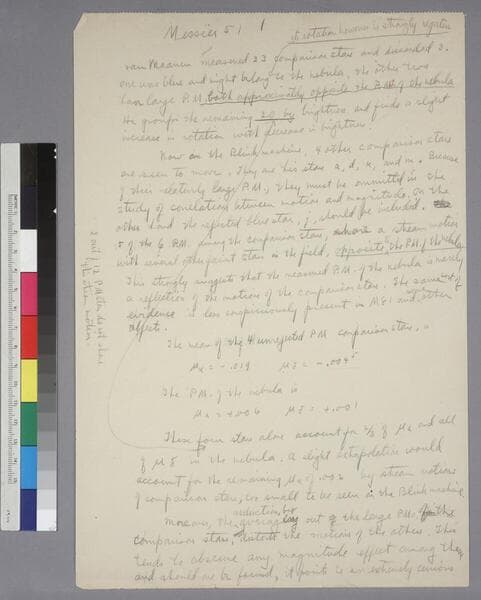 Messier 51
its rotation however is strongly negative
van Maanen measured 23 comparison stars and discarded 3.
one was blue and might belong to the nebula, the other two
have large P.M. both approximately opposite the P.M. of the nebula
He groups the remaining 20 by brightness and finds a slight
increase in rotation with decrease in brightness.
Now on the Blink machine, 4 other comparison stars
are seen to move. They are his stars a, d, and m. Because
of their relatively large P.M., they must be ommitted in the
study of correlations between motion and magnitude. On the
other hand the rejected blue star, j, should be included.
5 of the 6 P.M. among the comparison stars, a stream motion
with several other faint stars in the field, opposite the P.M. of the nebula
This strongly suggests that the measured P.M. of the nebula is merely
a reflection of the motions of the comparison stars. The same
evidence is less conspicuously present in M 81 and other
objects.
The mean of the 4 unrejected PM comparison stars, is
μα = -.019 μδ = -.004
The P.M. of the nebula is
μα = +.006 μδ = +.001
These four stars alone account for 2/3 of μα and all
of μδ in the nebula. A slight extrapolation would
account for the remaining μα of .002 by stream motions
of comparison stars, too small to be seen in the Blink machine.
reduction, by
Moreover, the averaging out of the large P.M. of the
comparison stars, the motions of the others. This
tends to obscure any magnitude effect among them
and should one be found, it points to an extremely curious